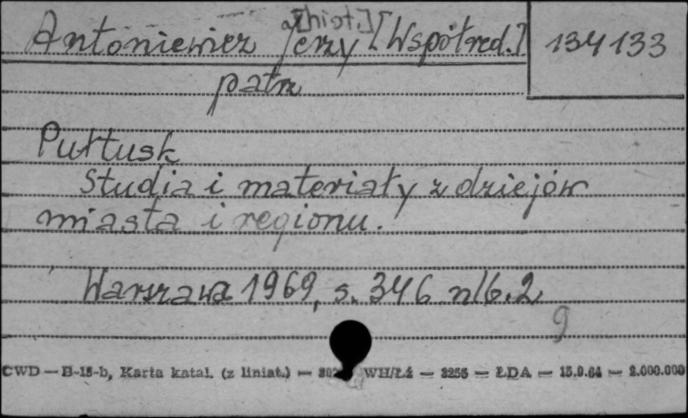 [hist.]
Antoniewicz Jerzy [Współred.] 134133
patrz
Pułtusk
Studia i materiały z dziejów
miasta i regionu.
Warszawa 1969, s. 346 nlb. 2
g
CWD — B-15-b, Karta katal. (z liniat.) — WH/Łź — 3255 — ŁDA — 15.9.64 — 2.000.000